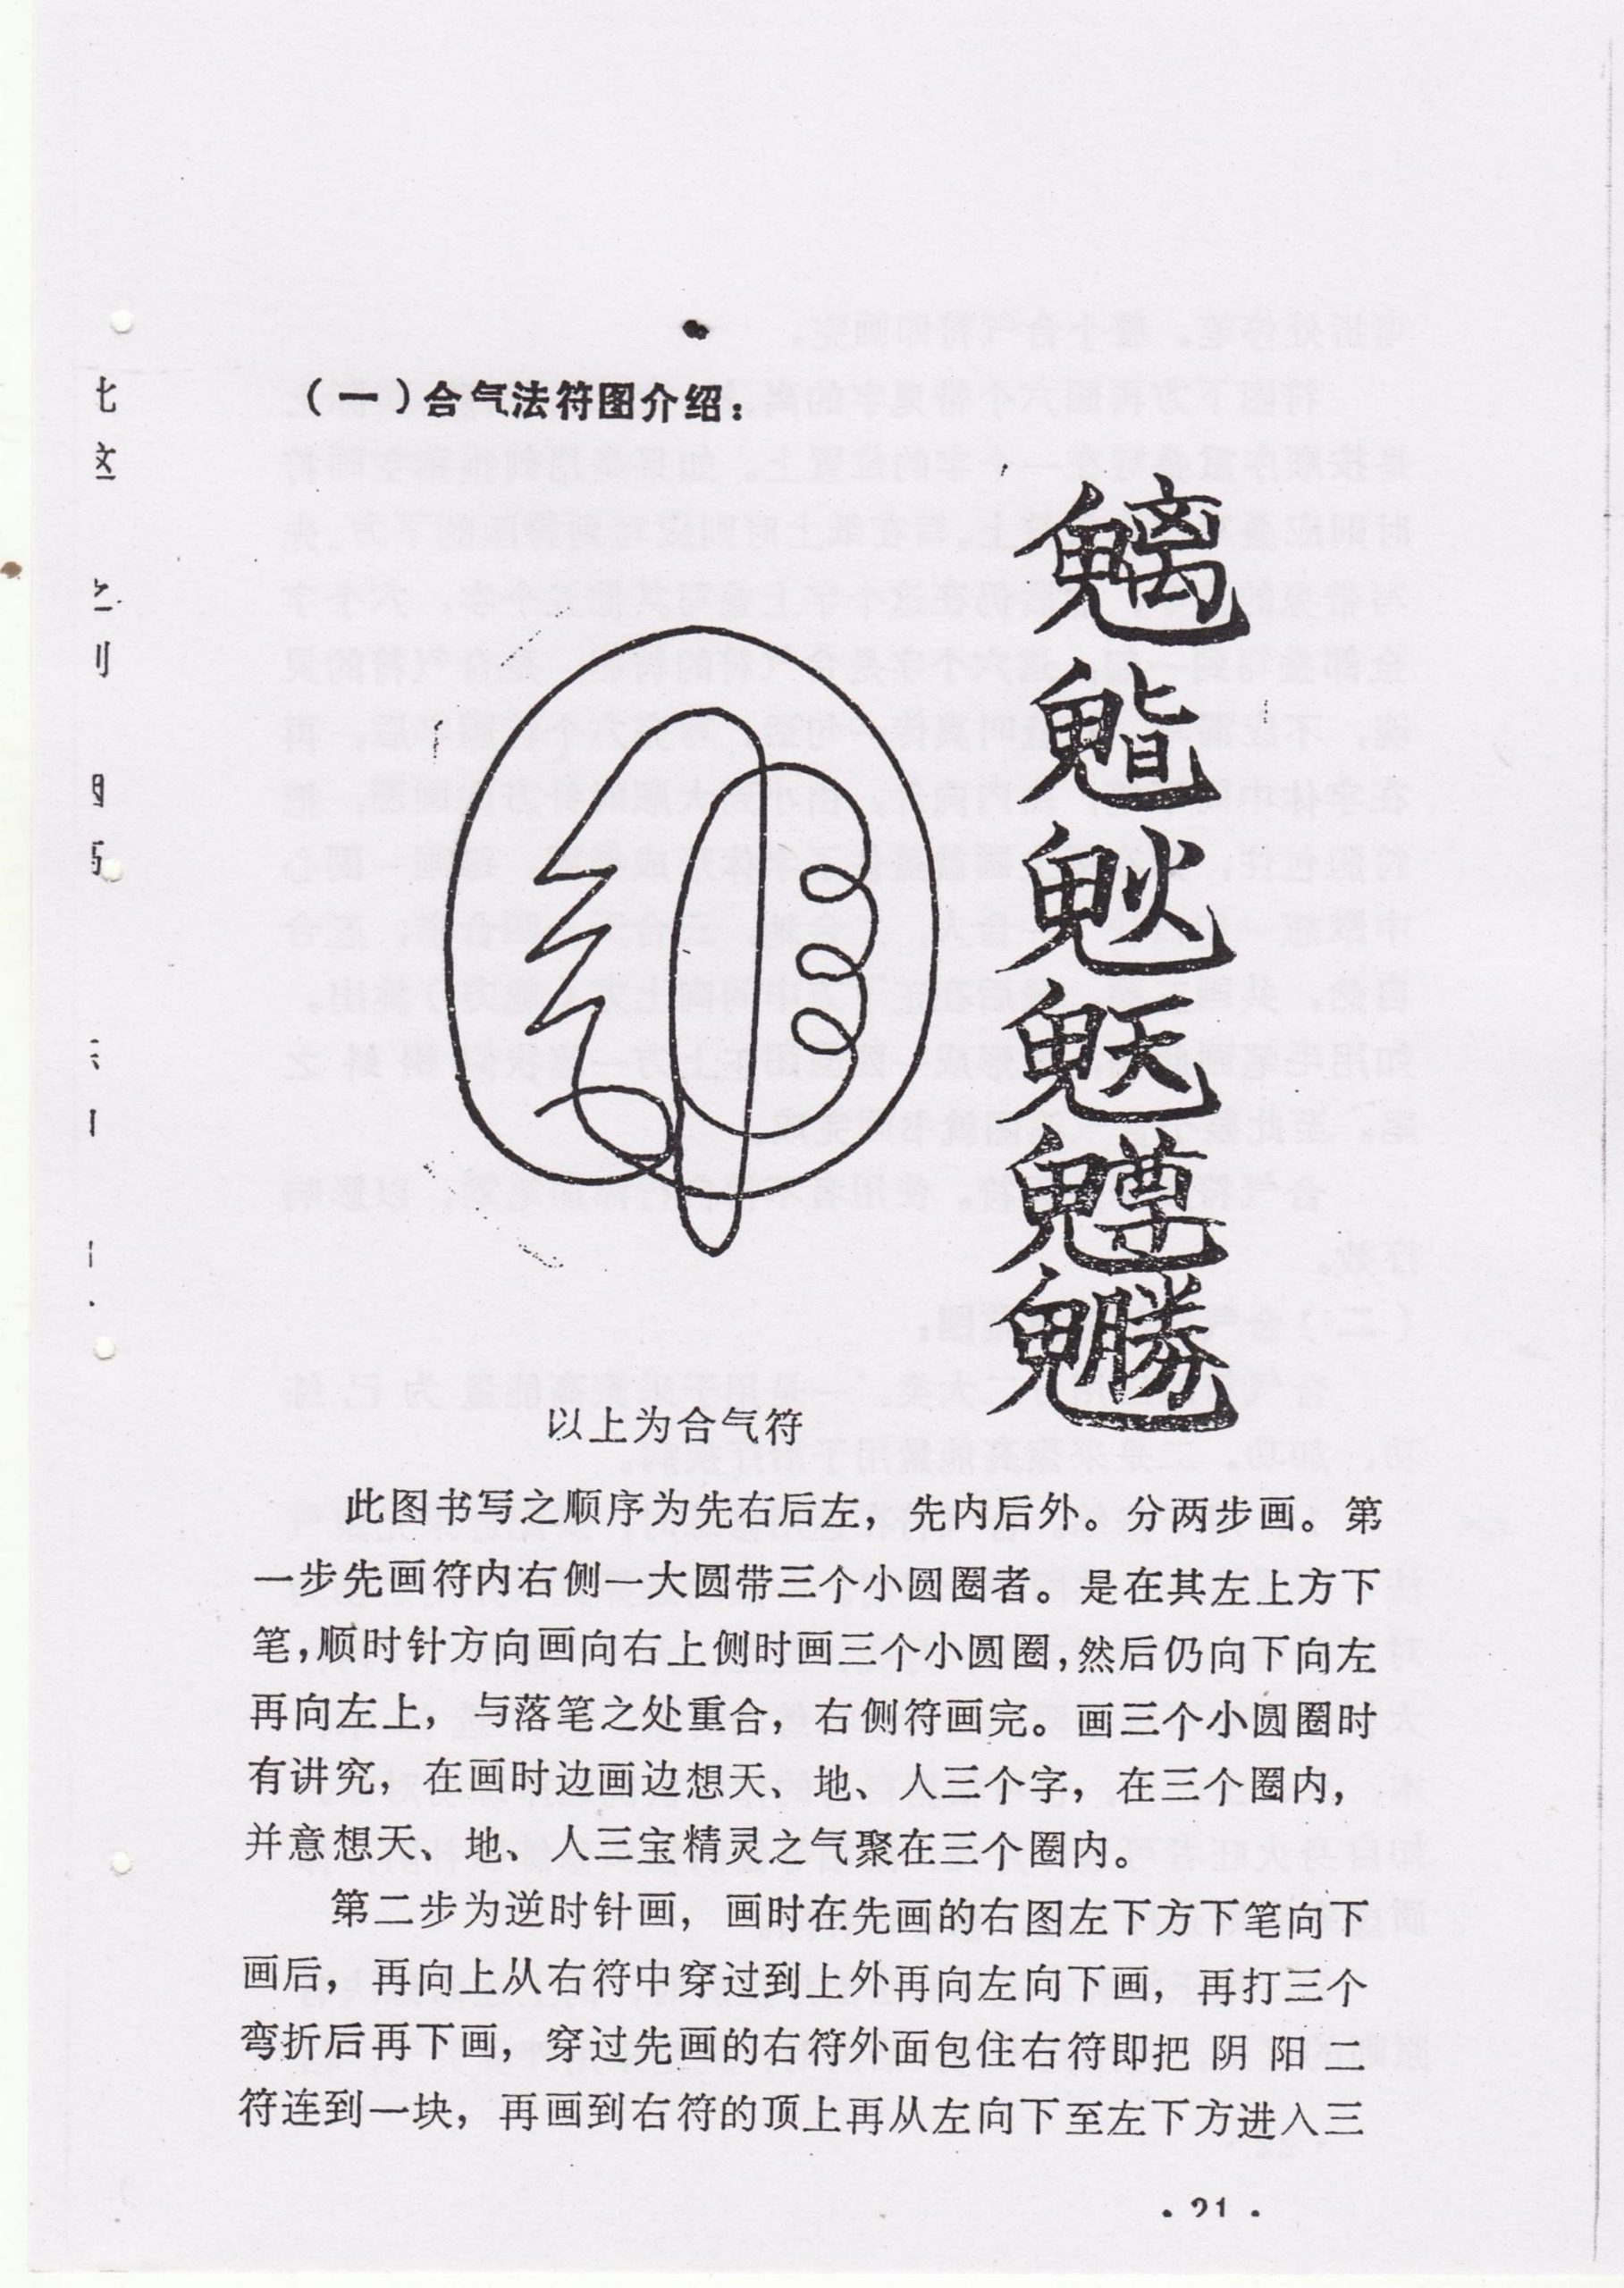 （一）合气法符图介绍：
魑
鬼旨
鬼火
鬼天
鬼尊
鬼勝
以上为合气符
此图书写之顺序为先右后左，先内后外。分两步画。第
一步先画符内右侧一大圆带三个小圆圈者。是在其左上方下
笔，顺时针方向画向右上侧时画三个小圆圈，然后仍向下向左
再向左上，与落笔之处重合，右侧符画完。画三个小圆圈时
有讲究，在画时边画边想天、地、人三个字，在三个圈内，
并意想天、地、人三宝精灵之气聚在三个圈内。
第二步为逆时针画，画时在先画的右图左下方下笔向下
画后，再向上从右符中穿过到上外再向左向下画，再打三个
弯折后再下画，穿过先画的右符外面包住右符即把阴阳二
符连到一块，再画到右符的顶上再从左向下至左下方进入三
·21·